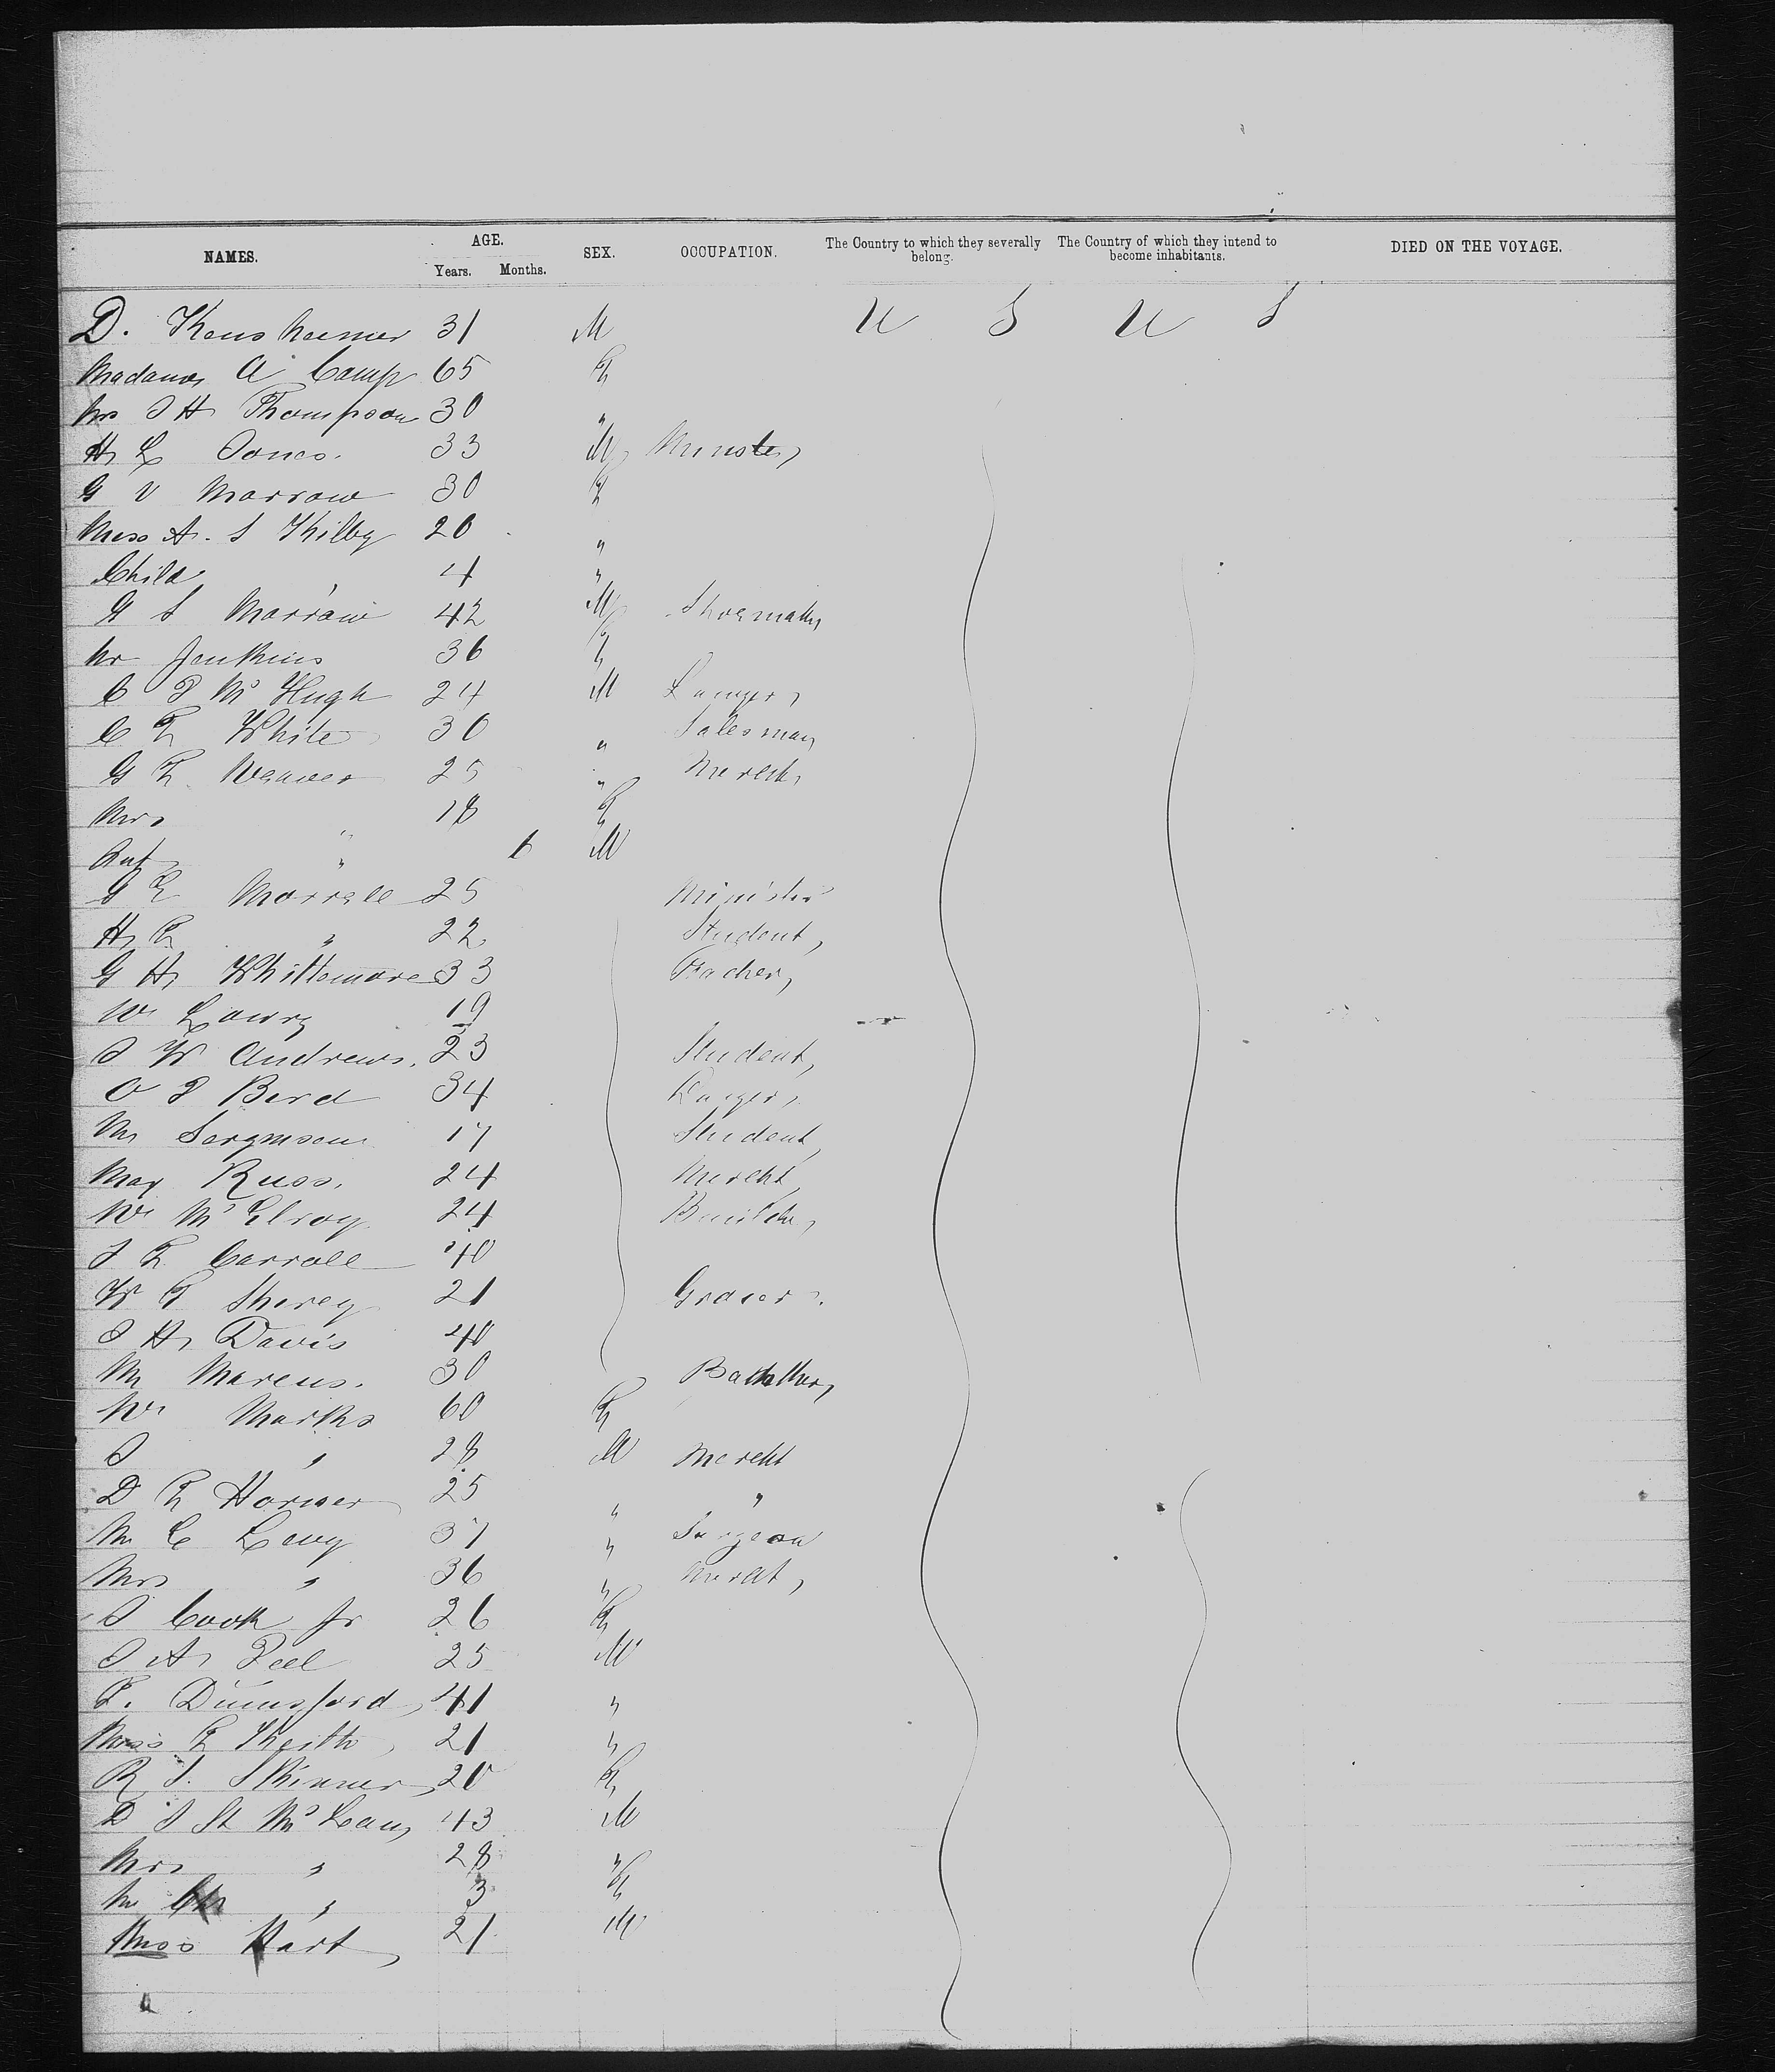 NAMES. AGE. Years. Months. SEX. OCCUPATION. The Country to which they severally belong. The Country of which they intend to become inhabitants. DIED ON THE VOYAGE.
D. 31 M U S U S
Madame A Camp 65 F
Mrs J H Thompson 30 "
H L Jones. 33 M Minster
G V Marrow 30 F
Miss A. S Kilby 20 "
Child 4 "
G S Marrow 42 M Shoemaker
Mr Jenkins 36 F
C P Mc Hugh 24 M Lawyer
C F White 30 " Salesman
G F Weaver 25 " Mercht
Mrs " 18 F
Inf " 6 M
G E Morrell 25 Minister
H E " 22 Student
G H Whittemore 33 Teacher
W Lowry 19
J W Andrews. 23 Student
O P Berd 34 Lawyer
M 17 Student
Max Russ. 24 Mercht
W Mc Elroy 24 Builder
J F Carroll 40
W T Sherey 21 Grocer.
J H Davis 40
M Marcus. 30
W Marks 60 F
J " 28 M Mercht
D F Horner 25 " "
M C Levy 37 " Surgeon
Mrs " 36 " Mercht
J Cook Jr 26 F
J A Peel 25 M
F. Dunnsford 41 "
Miss F Keith 21 "
R S. Skinner 20 F
D J St Mc Lean 43 M
Mrs " 28 "
M " 3 F
Miss Hart 21 M